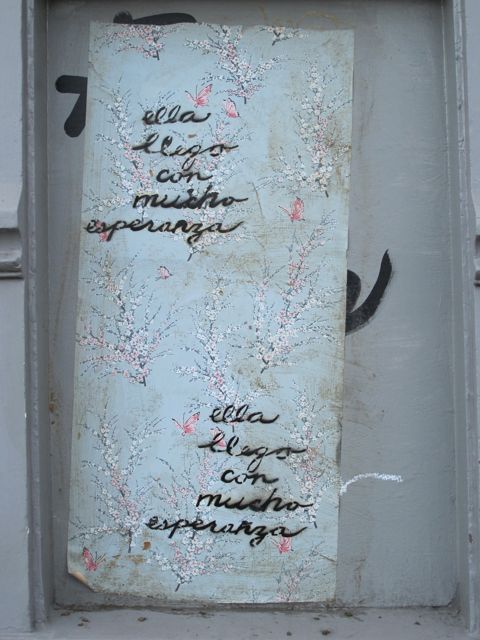 ella
llego
con
mucho
esperanza
ella
llego
con
mucho
esperanza